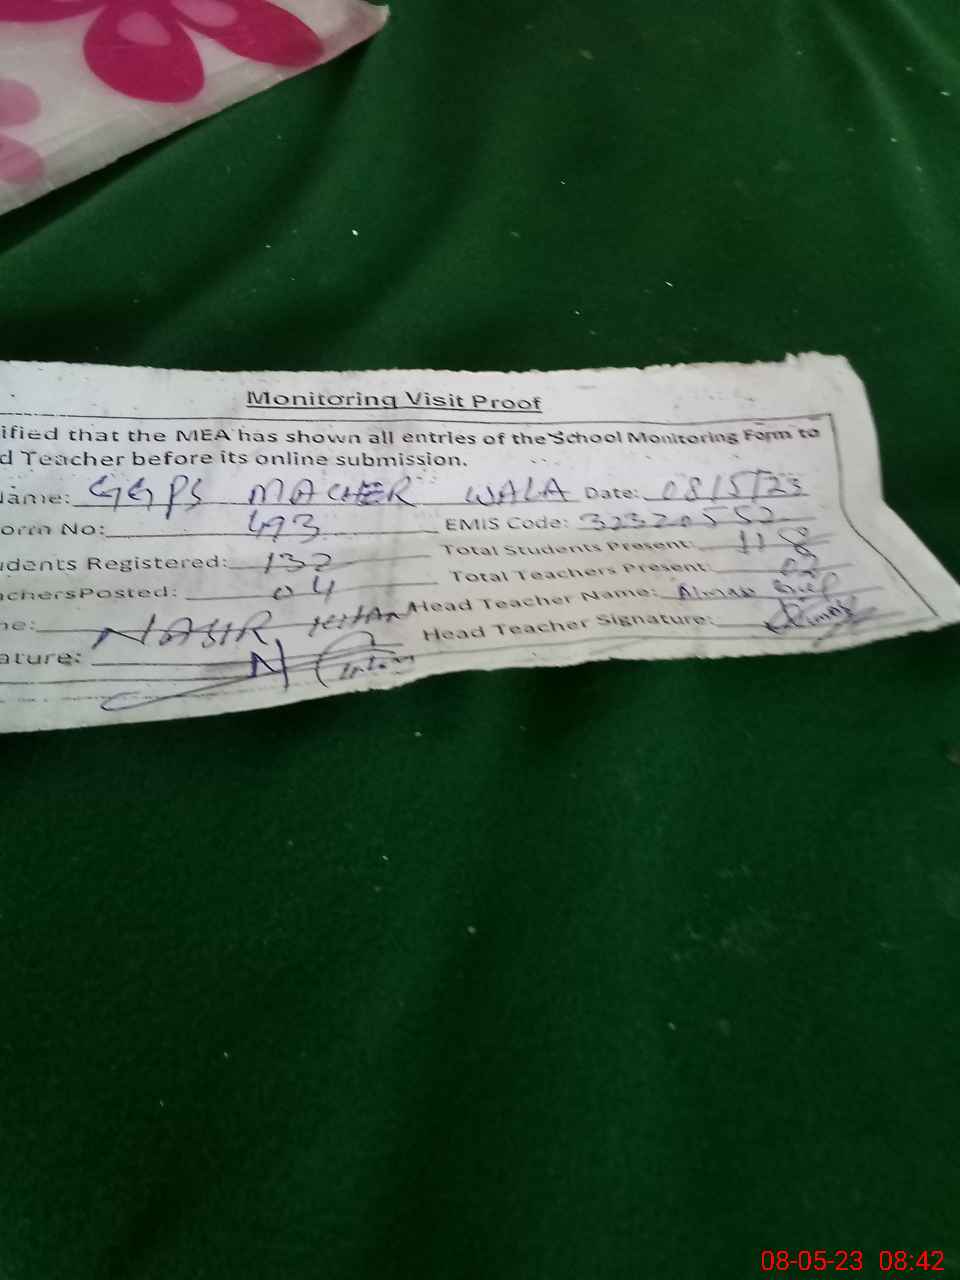 Monitoring Visit Proof
ified that the MEA has shown all entries of the School Monitoring Form to
d Teacher before its online submission.
Name: GGPS MACHER WALA Date: 08/5/23
orm No: 493 EMIS Code: 32320552
udents Registered: 132 Total Students Present: 118
achersPosted: 04 Total Teachers Present: 03
ne: NASIR KHAN Head Teacher Name: Almas
ature: Head Teacher Signature:
08-05-23 08:42